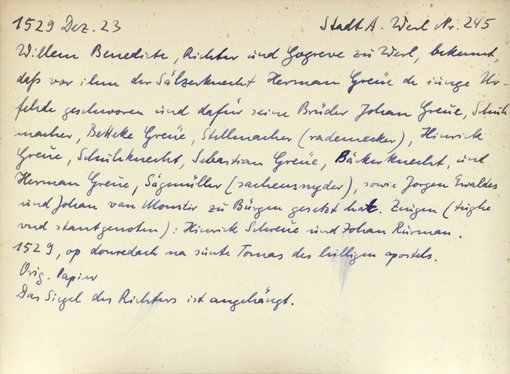 1529 Dez. 23 Stadt A. Werl Nr. 245
Willem Benedicte, Richter und Gogreve zu Werl, bekennt,
daß vor ihm der Sälzerknecht Herman Greue de iunge Ur-
fehde geschworen und dafür seine Brüder Johan Greue, Schuh-
macher, Betteke Greue, Stellmacher (rademecker), Hinrick
Greue, Schuhknecht, Sebastian Greue, Bäkerknecht, und
Herman Greue, Sägmüller (sachensnyder), sowie Jorgen Ewaldes
und Johan van Monster zu Bürgen gesetzt hat. Zeugen (tughe
vnd stantgenoten): Hinrick Schreue und Johan Rürman.
1529, op donredach na sunte Tomas des hilligen apostels.
Orig. Papier
Das Siegel des Richters ist angehängt.